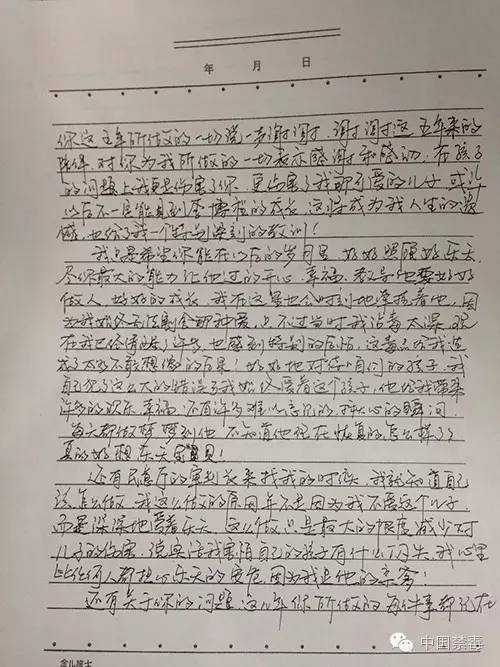 年 月 日
你这五年所做的一切说一声谢谢, 谢谢这五年来的
陪伴, 对你为我所做的一切表示感谢和感动, 在孩子
的问题上我更是伤害了你, 更伤害了我所爱的儿子, 或许
以后不一定能见到他的成长, 这将成为我人生的遗
憾, 也给了我一个特别深刻的教训!
我只是希望你能在以后的岁月里, 好好照顾好乐天,
尽你最大的能力让他过的开心、幸福, 教导他要好好
做人, 好好的成长, 我在这里也会时刻地牵挂着他, 因
为我始终无法割舍那种爱, 只不过当时我沾毒太深, 现
在我已经清醒了许多, 也感到特别的后怕, 这毒品给我造
成了太多不敢想像的后果! 好好地对待咱们的孩子, 我
自己犯了这么大的错误 我始终爱着这个孩子, 他给我带来
许多的欢乐、幸福, 还有许多难以忘记的 开心的瞬间,
每天都做梦梦到他, 不知道他现在恢复的怎么样了,
真的好想乐天宝贝!
还有民意厅的 来找我的时候, 我就知道自己
该怎么做, 我这么做的原因并不是因为我不要这个儿子,
而是深深地爱着乐天, 这么做只是最大的限度减少对
儿子的伤害, 说实话我害怕自己的孩子有什么闪失, 我心里
比任何人都担心乐天的安危, 因为我是他的亲爹!
还有关于你的问题, 这几年你所做的每件事都记在
中国禁毒